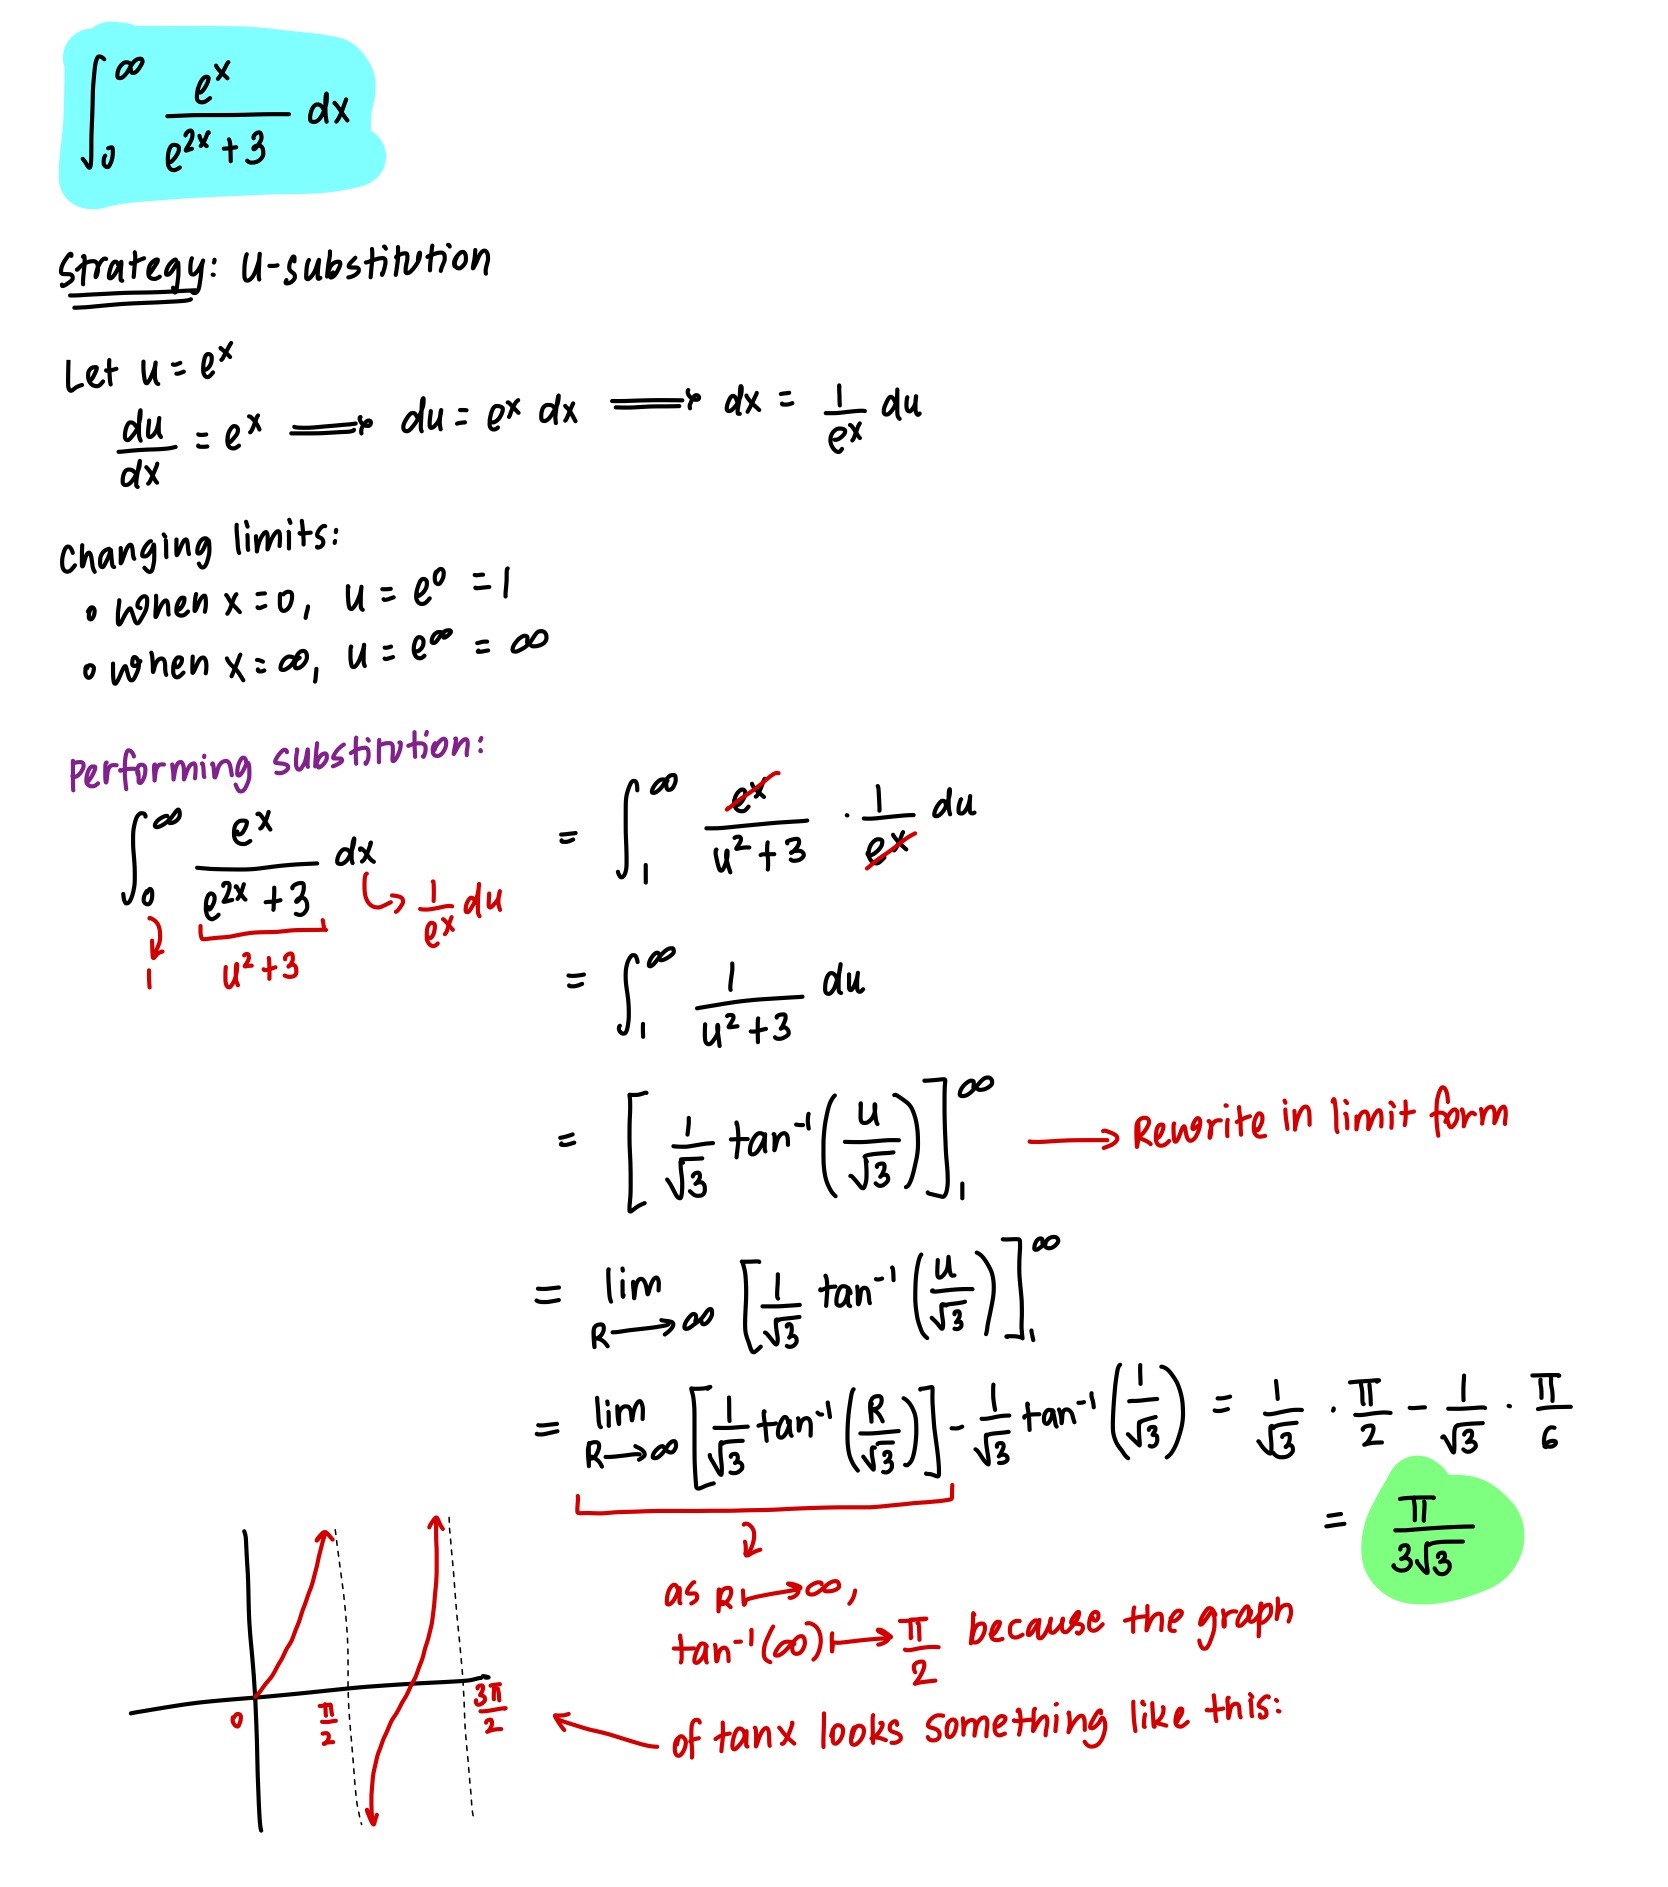 ∫₀^∞ eˣ/(e²ˣ + 3) dx
Strategy: U-substitution
Let u = eˣ
du/dx = eˣ ⟹ du = eˣ dx ⟹ dx = 1/eˣ du
Changing limits:
• When x = 0, u = e⁰ = 1
• When x = ∞, u = e^∞ = ∞
Performing substitution:
∫₀^∞ eˣ/(e²ˣ + 3) dx = ∫₁^∞ eˣ/(u² + 3) · 1/eˣ du
1 u² + 3 1/eˣ du
= ∫₁^∞ 1/(u² + 3) du
= [1/√3 tan⁻¹(u/√3)]₁^∞ → Rewrite in limit form
= lim R→∞ [1/√3 tan⁻¹(u/√3)]₁^∞
= lim R→∞ [1/√3 tan⁻¹(R/√3)] - 1/√3 tan⁻¹(1/√3) = 1/√3 · π/2 - 1/√3 · π/6
= π/(3√3)
as R ↦ ∞,
tan⁻¹(∞) ↦ π/2 because the graph
of tanx looks something like this:
0 π/2 3π/2